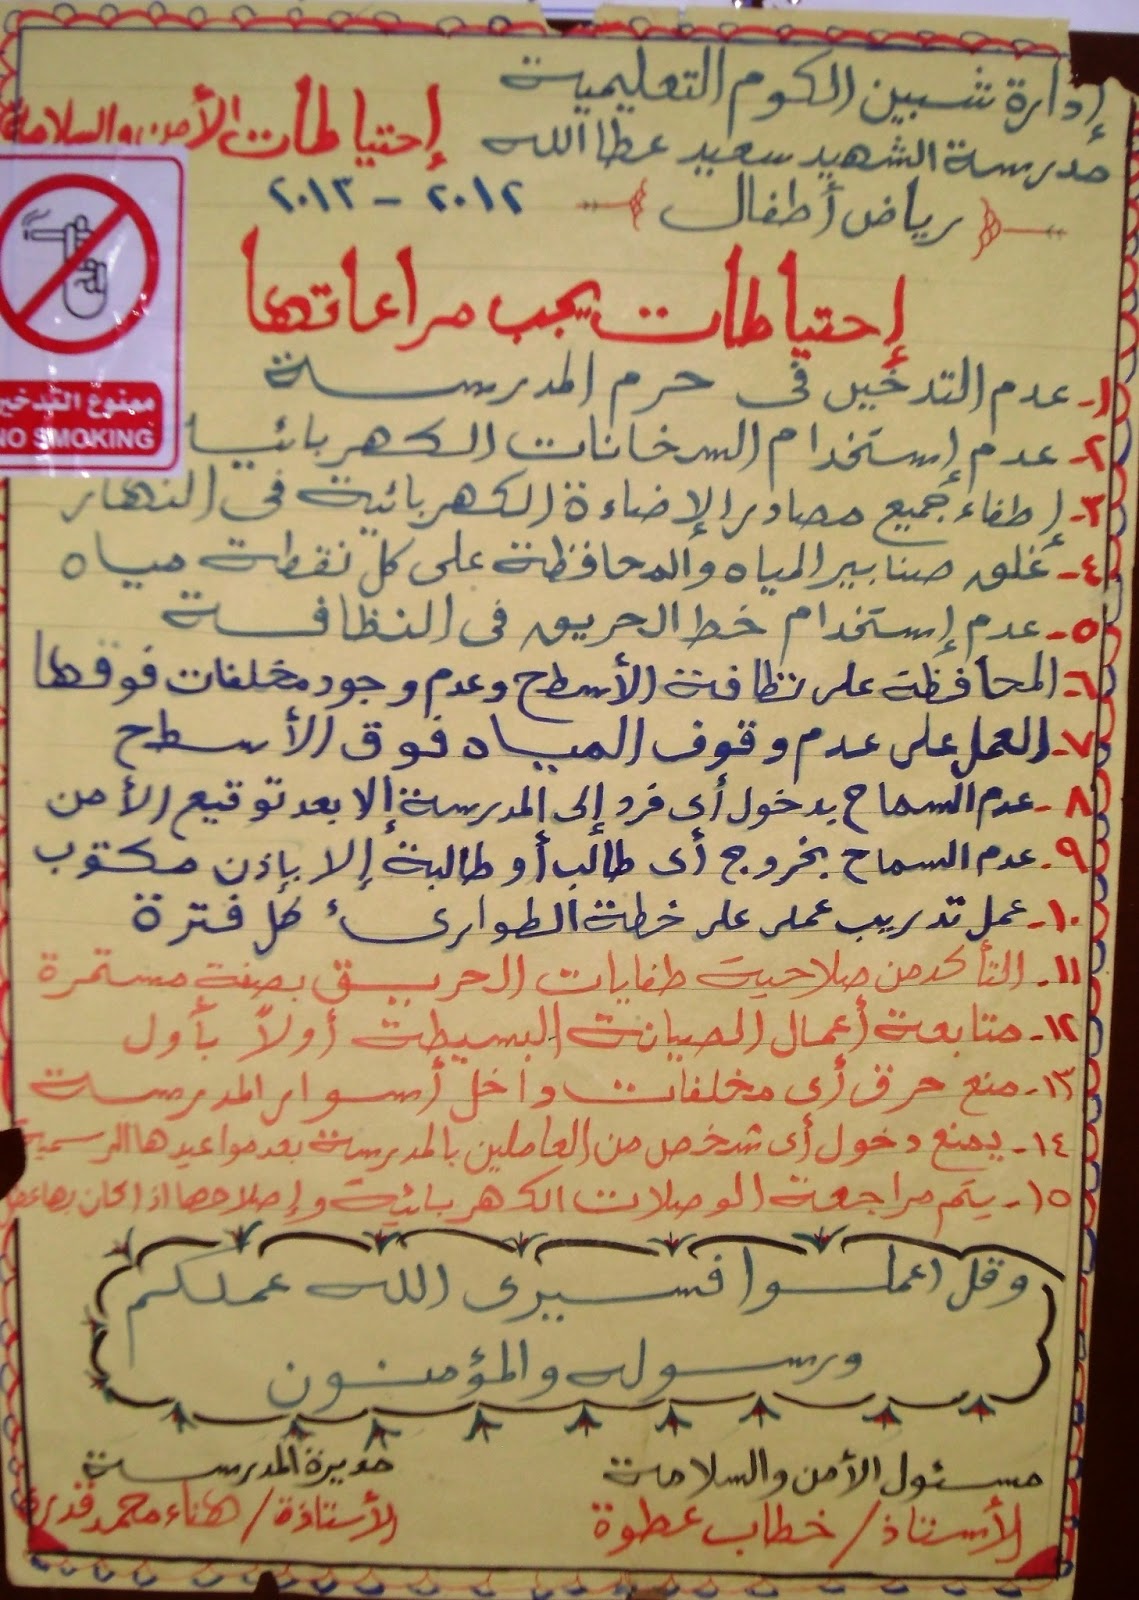 إدارة شبين الكوم التعليمية
مدرسة الشهيد سعيد عطا الله
رياض أطفال
إحتياطات الأمن والسلامة
٢٠١٢ - ٢٠١٣
ممنوع التدخين
NO SMOKING
إحتياطات يجب مراعاتها
١- عدم التدخين فى حرم المدرسة
٢- عدم إستخدام السخانات الكهربائية
٣- إطفاء جميع مصادر الإضاءة الكهربائية فى النهار
٤- غلق صنابير المياه والمحافظة على كل نقطة مياه
٥- عدم إستخدام خط الحريق فى النظافة
٦- المحافظة على نظافة الأسطح وعدم وجود مخلفات فوقها
٧- العمل على عدم وقوف المياه فوق الأسطح
٨- عدم السماح بدخول أى فرد إلى المدرسة إلا بعد توقيع الأمن
٩- عدم السماح بخروج أى طالب أو طالبة إلا بإذن مكتوب
١٠- عمل تدريب عملى على خطة الطوارئ كل فترة
١١- التأكد من صلاحية طفايات الحريق بصفة مستمرة
١٢- متابعة أعمال الصيانة البسيطة أولاً بأول
١٣- منع حرق أى مخلفات داخل أسوار المدرسة
١٤- يمنع دخول أى شخص من العاملين بالمدرسة بعد مواعيدها الرسمية
١٥- يتم مراجعة الوصلات الكهربائية وإصلاحها اذا كان بها
وقل اعملوا فسيرى الله عملكم
ورسوله والمؤمنون
مسئول الأمن والسلامة
الأستاذ / خطاب عطوة
مديرة المدرسة
الأستاذة / هناء محمد